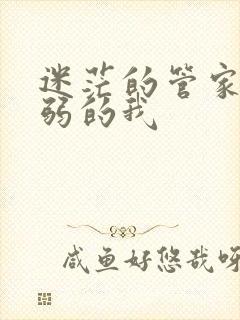 迷茫的管家
弱的我
咸鱼好悠哉呀